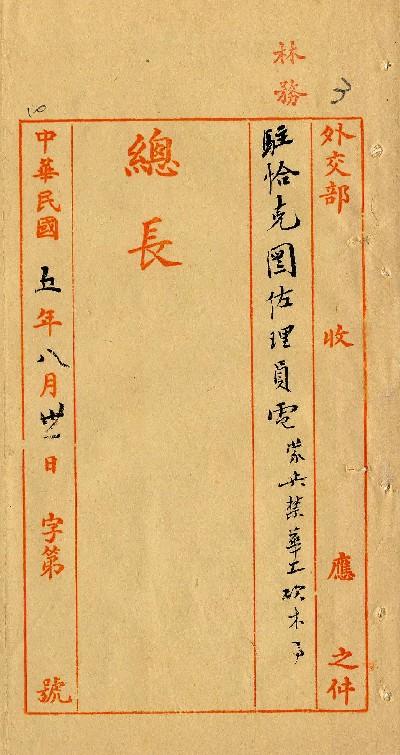 林務
3
外交部 收 應 之件
駐恰克圖佐理員電 蒙兵禁華工砍木事
總長
中華民國五年八月卅日 字第 號